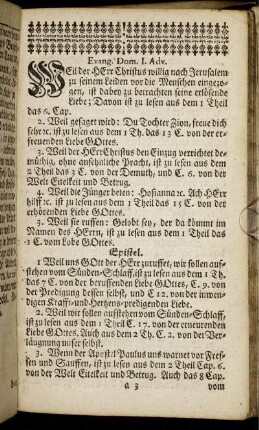 Evang. Dom. I. Adv.
WEil der HErr Christus willig nach Jerusalem
zu seinem Leiden vor die Menschen eingezo-
gen, ist dabey zu betrachten seine erlösende
Liebe; Davon ist zu lesen aus dem 1 Theil
das 6. Cap.
2. Weil gesaget wird: Du Tochter Zion, freue dich
sehr ꝛc. ist zu lesen aus dem 1 Th. das 13 C. von der er-
freuenden Liebe GOttes.
3. Weil der HErr Christus den Einzug verrichtet de-
müthig, ohne ansehnliche Pracht, ist zu lesen aus dem
2 Theil das 3 C. von der Demuth, und C. 6. von der
Welt Eitelkeit und Betrug.
4. Weil die Jünger beten: Hosianna ꝛc. Ach HErr
hilff ꝛc. ist zu lesen aus dem 1 Theil das 15 C. von der
erhörenden Liebe GOttes.
5. Weil sie ruffen: Gelobt sey, der da kömmt im
Namen des HErrn, ist zu lesen aus dem 1 Theil das
1 C. vom Lobe GOttes.
Epistel.
1 Weil uns GOtt der HErr zuruffet, wir sollen auf-
stehen vom Sünden-Schlaff, ist zu lesen aus dem 1 Th.
das 7 C. von der beruffenden Liebe GOttes, C. 9. von
der Predigung dessen selbst, und C 12. von der inwen-
digen Krafft- und Hertzens-predigenden Liebe.
2. Weil wir sollen aufstehen vom Sünden-Schlaff,
ist zu lesen aus dem 1 Theil C. 17. von der erneurenden
Liebe GOttes. Auch aus dem 2 Th. C. 2. von der Ver-
läugnung unser selbst.
3. Wenn der Apostel Paulus uns warnet vor Fres-
sen und Sauffen, ist zu lesen aus dem 2 Theil Cap. 6.
von der Welt Eitelkeit und Betrug. Auch das 8 Cap.
a 3 vom